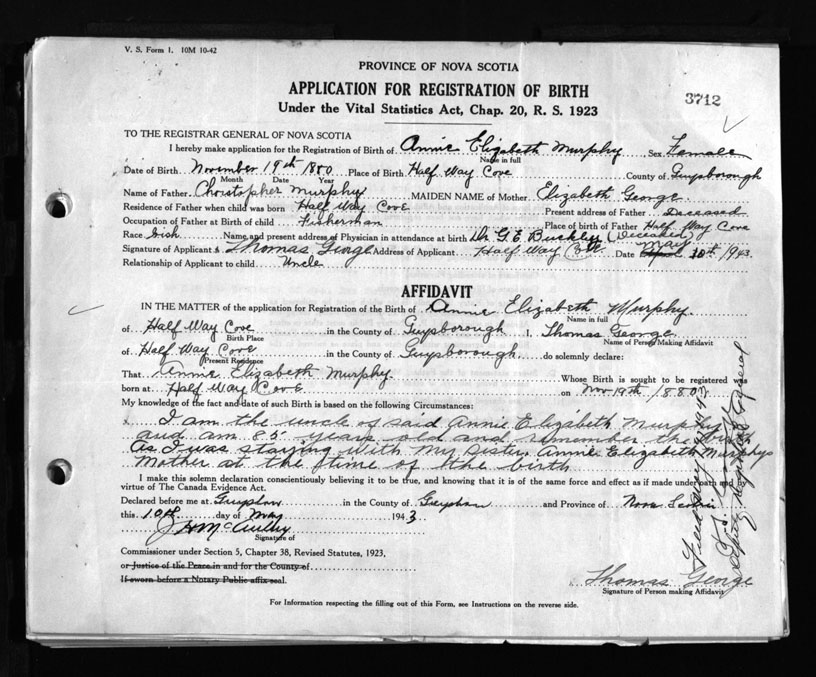 V. S. Form 1. 10M 10-42
PROVINCE OF NOVA SCOTIA
APPLICATION FOR REGISTRATION OF BIRTH
3712
Under the Vital Statistics Act, Chap. 20, R. S. 1923
TO THE REGISTRAR GENERAL OF NOVA SCOTIA
I hereby make application for the Registration of Birth of Annie Elizabeth Murphy Sex Female
Name in full
Date of Birth November 19th 1880 Place of Birth Half Way Cove County of Guysborough
Month Date Year
Name of Father Christopher Murphy MAIDEN NAME of Mother Elizabeth George
Residence of Father when child was born Half Way Cove Present address of Father Deceased
Occupation of Father at Birth of child Fisherman Place of birth of Father Half Way Cove
Race Name and present address of Physician in attendance at birth Dr G. E. Buckley (Deceased)
Signature of Applicant Thomas George Address of Applicant Half Way Cove Date May 10th 1943
Relationship of Applicant to child Uncle
AFFIDAVIT
IN THE MATTER of the application for Registration of the Birth of Annie Elizabeth Murphy
Name in full
of Half Way Cove in the County of Guysborough I, Thomas George
Birth Place Name of Person Making Affidavit
of Half Way Cove in the County of Guysborough do solemnly declare:
Present Residence
That Annie Elizabeth Murphy Whose Birth is sought to be registered was
born at Half Way Cove on Nov 19th 1880
My knowledge of the fact and date of such Birth is based on the following Circumstances:
I am the uncle of said Annie Elizabeth Murphy
and am 85 years old and remember the birth
As I was staying with my sister, Annie Elizabeth Murphys
Mother at the time of the birth
I make this solemn declaration conscientiously believing it to be true, and knowing that it is of the same force and effect as if made under oath and by
virtue of The Canada Evidence Act.
Declared before me at in the County of and Province of Nova Scotia
this 10th day of May 1943
Signature of
Commissioner under Section 5, Chapter 38, Revised Statutes, 1923,
or Justice of the Peace in and for the County of
If sworn before a Notary Public affix seal.
Thomas George
Signature of Person making Affidavit
For Information respecting the filling out of this Form, see Instructions on the reverse side.